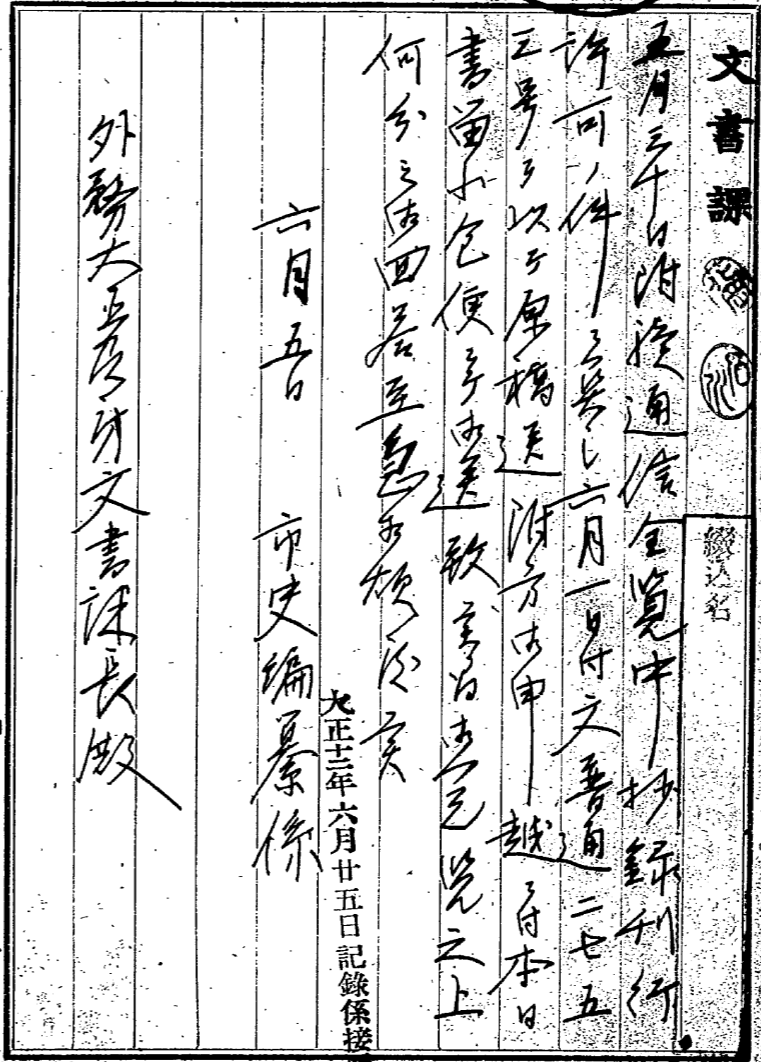 文書課
綴込名
五月三十日附続通信全覧中抄録刊行
許可ノ件ニ関シ六月一日付文普通二七五
三号ヲ以テ原稿送附方御申越ニ付本日
書留小包便ニテ御送致候間御覧之上
何分之御回答至急相煩度候
六月五日 市史編纂係
大正十二年六月廿五日記録係接
外務大臣官房文書課長殿